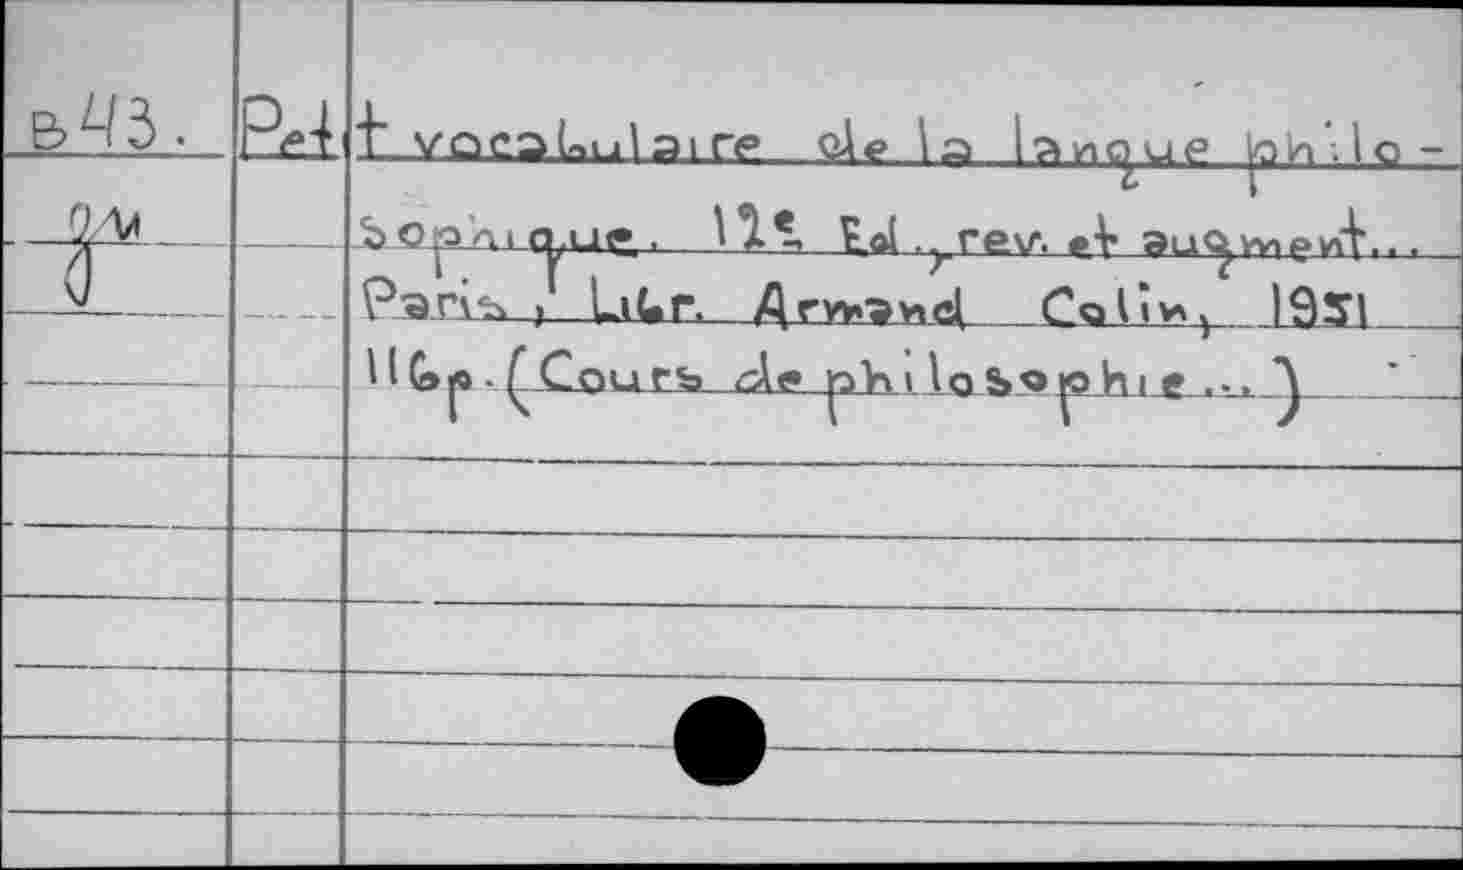 B43. Petit vocabulaire de la langue philo-
sophique. 12e Ed., rev. et augment...
Paris, Libr. Armand Colin, 1951
116p. (Cours de philosophie ...)